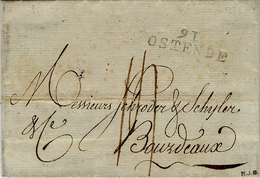 91
OSTENDE
Messieurs Schroder & Schyler
& Cᵉ
Bourdeaux
R.J.B.